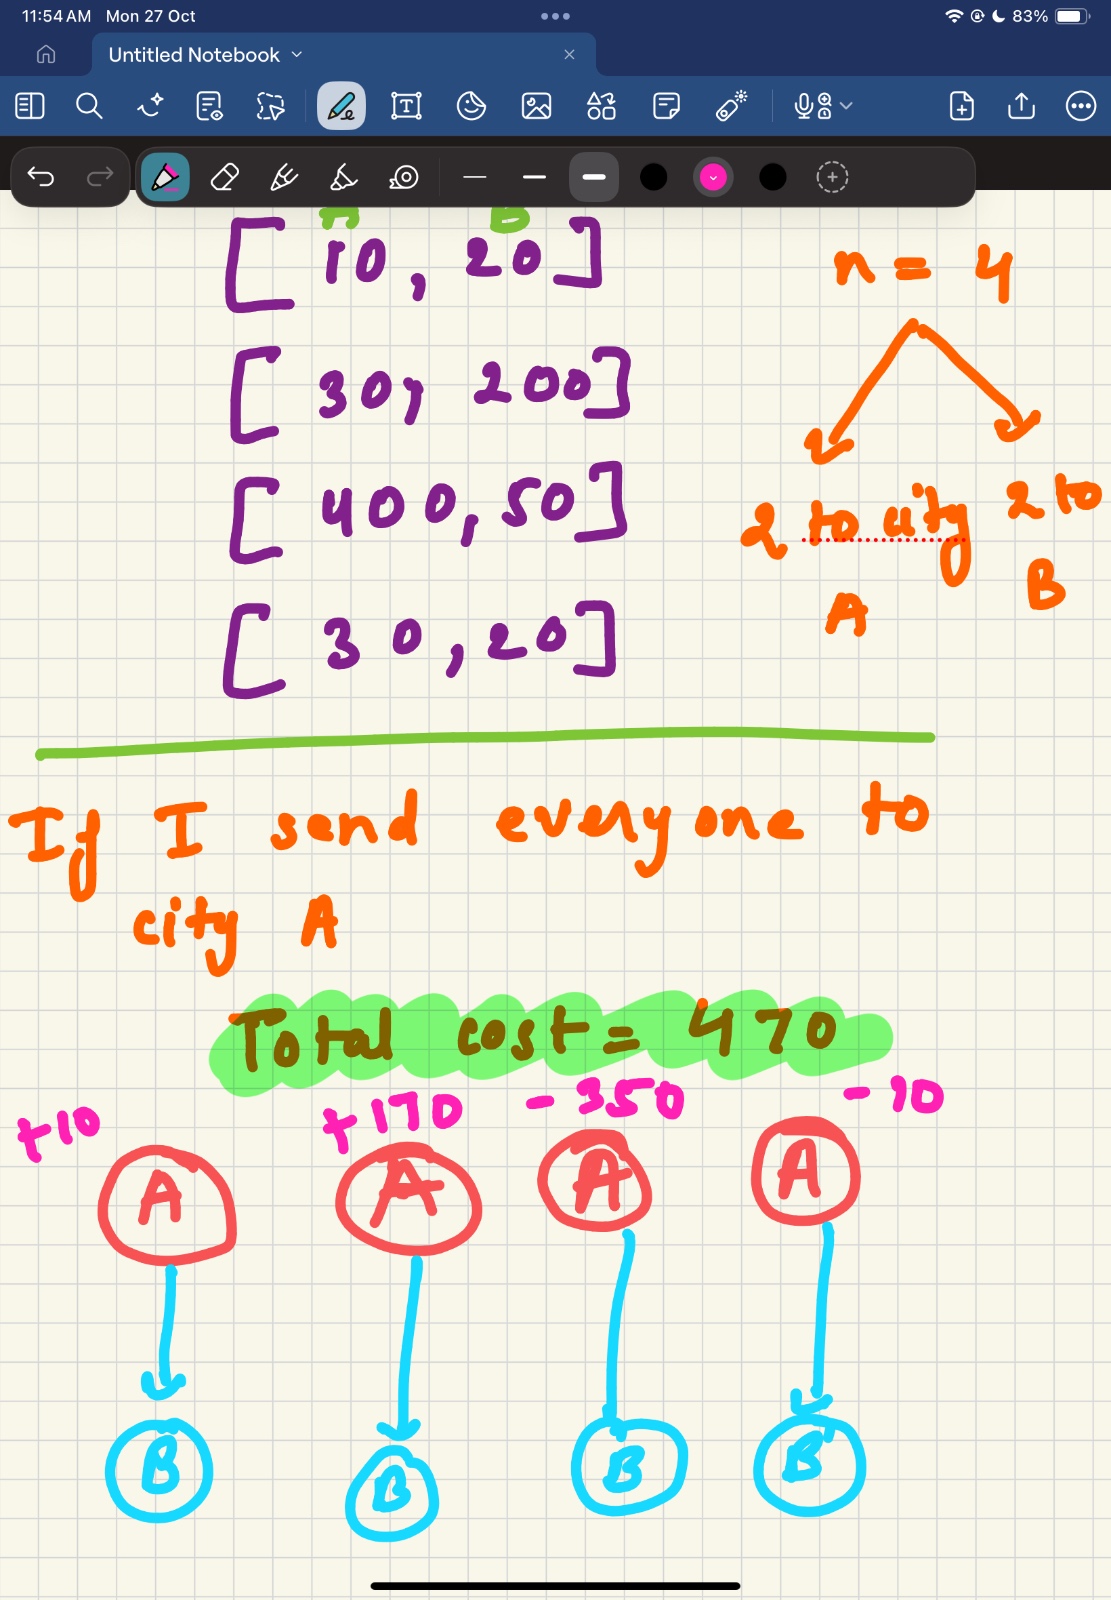 11:54 AM Mon 27 Oct
83%
Untitled Notebook
A B
[ 10, 20 ]
n = 4
[ 30, 200 ]
[ 400, 50 ]
2 to city A
2 to B
[ 30, 20 ]
If I send everyone to
city A
Total cost = 470
+10 +170 - 350 - 10
A A A A
B B B B